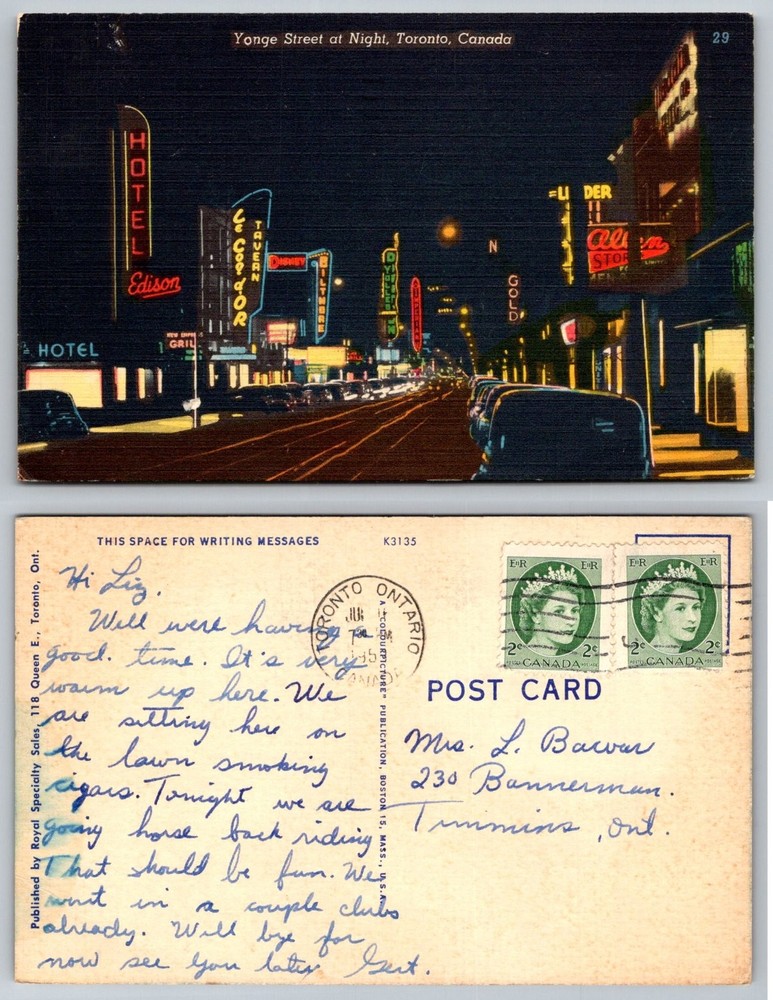 Yonge Street at Night, Toronto, Canada
29
HOTEL
Edison
Le Coq d'OR
TAVERN
DISNEY
BILTMORE
N
GOLD
HOTEL
GRILL
THIS SPACE FOR WRITING MESSAGES
K3135
Published by Royal Specialty Sales, 118 Queen E., Toronto, Ont.
A "COLOURPICTURE" PUBLICATION, BOSTON 15, MASS., U.S.A.
TORONTO ONTARIO
CANADA
EIIR EIIR
2¢ CANADA 2¢
EIIR EIIR
2¢ CANADA 2¢
POST CARD
Hi Liz.
Well were having a
good. time. It's very
warm up here. We
are sitting here on
the lawn smoking
cigars. Tonight we are
going horse back riding
That should be fun. We
went in a couple clubs
already. Well bye for
now see you later Gert.
Mrs. L.
230 Bannerman.
Timmins, Ont.